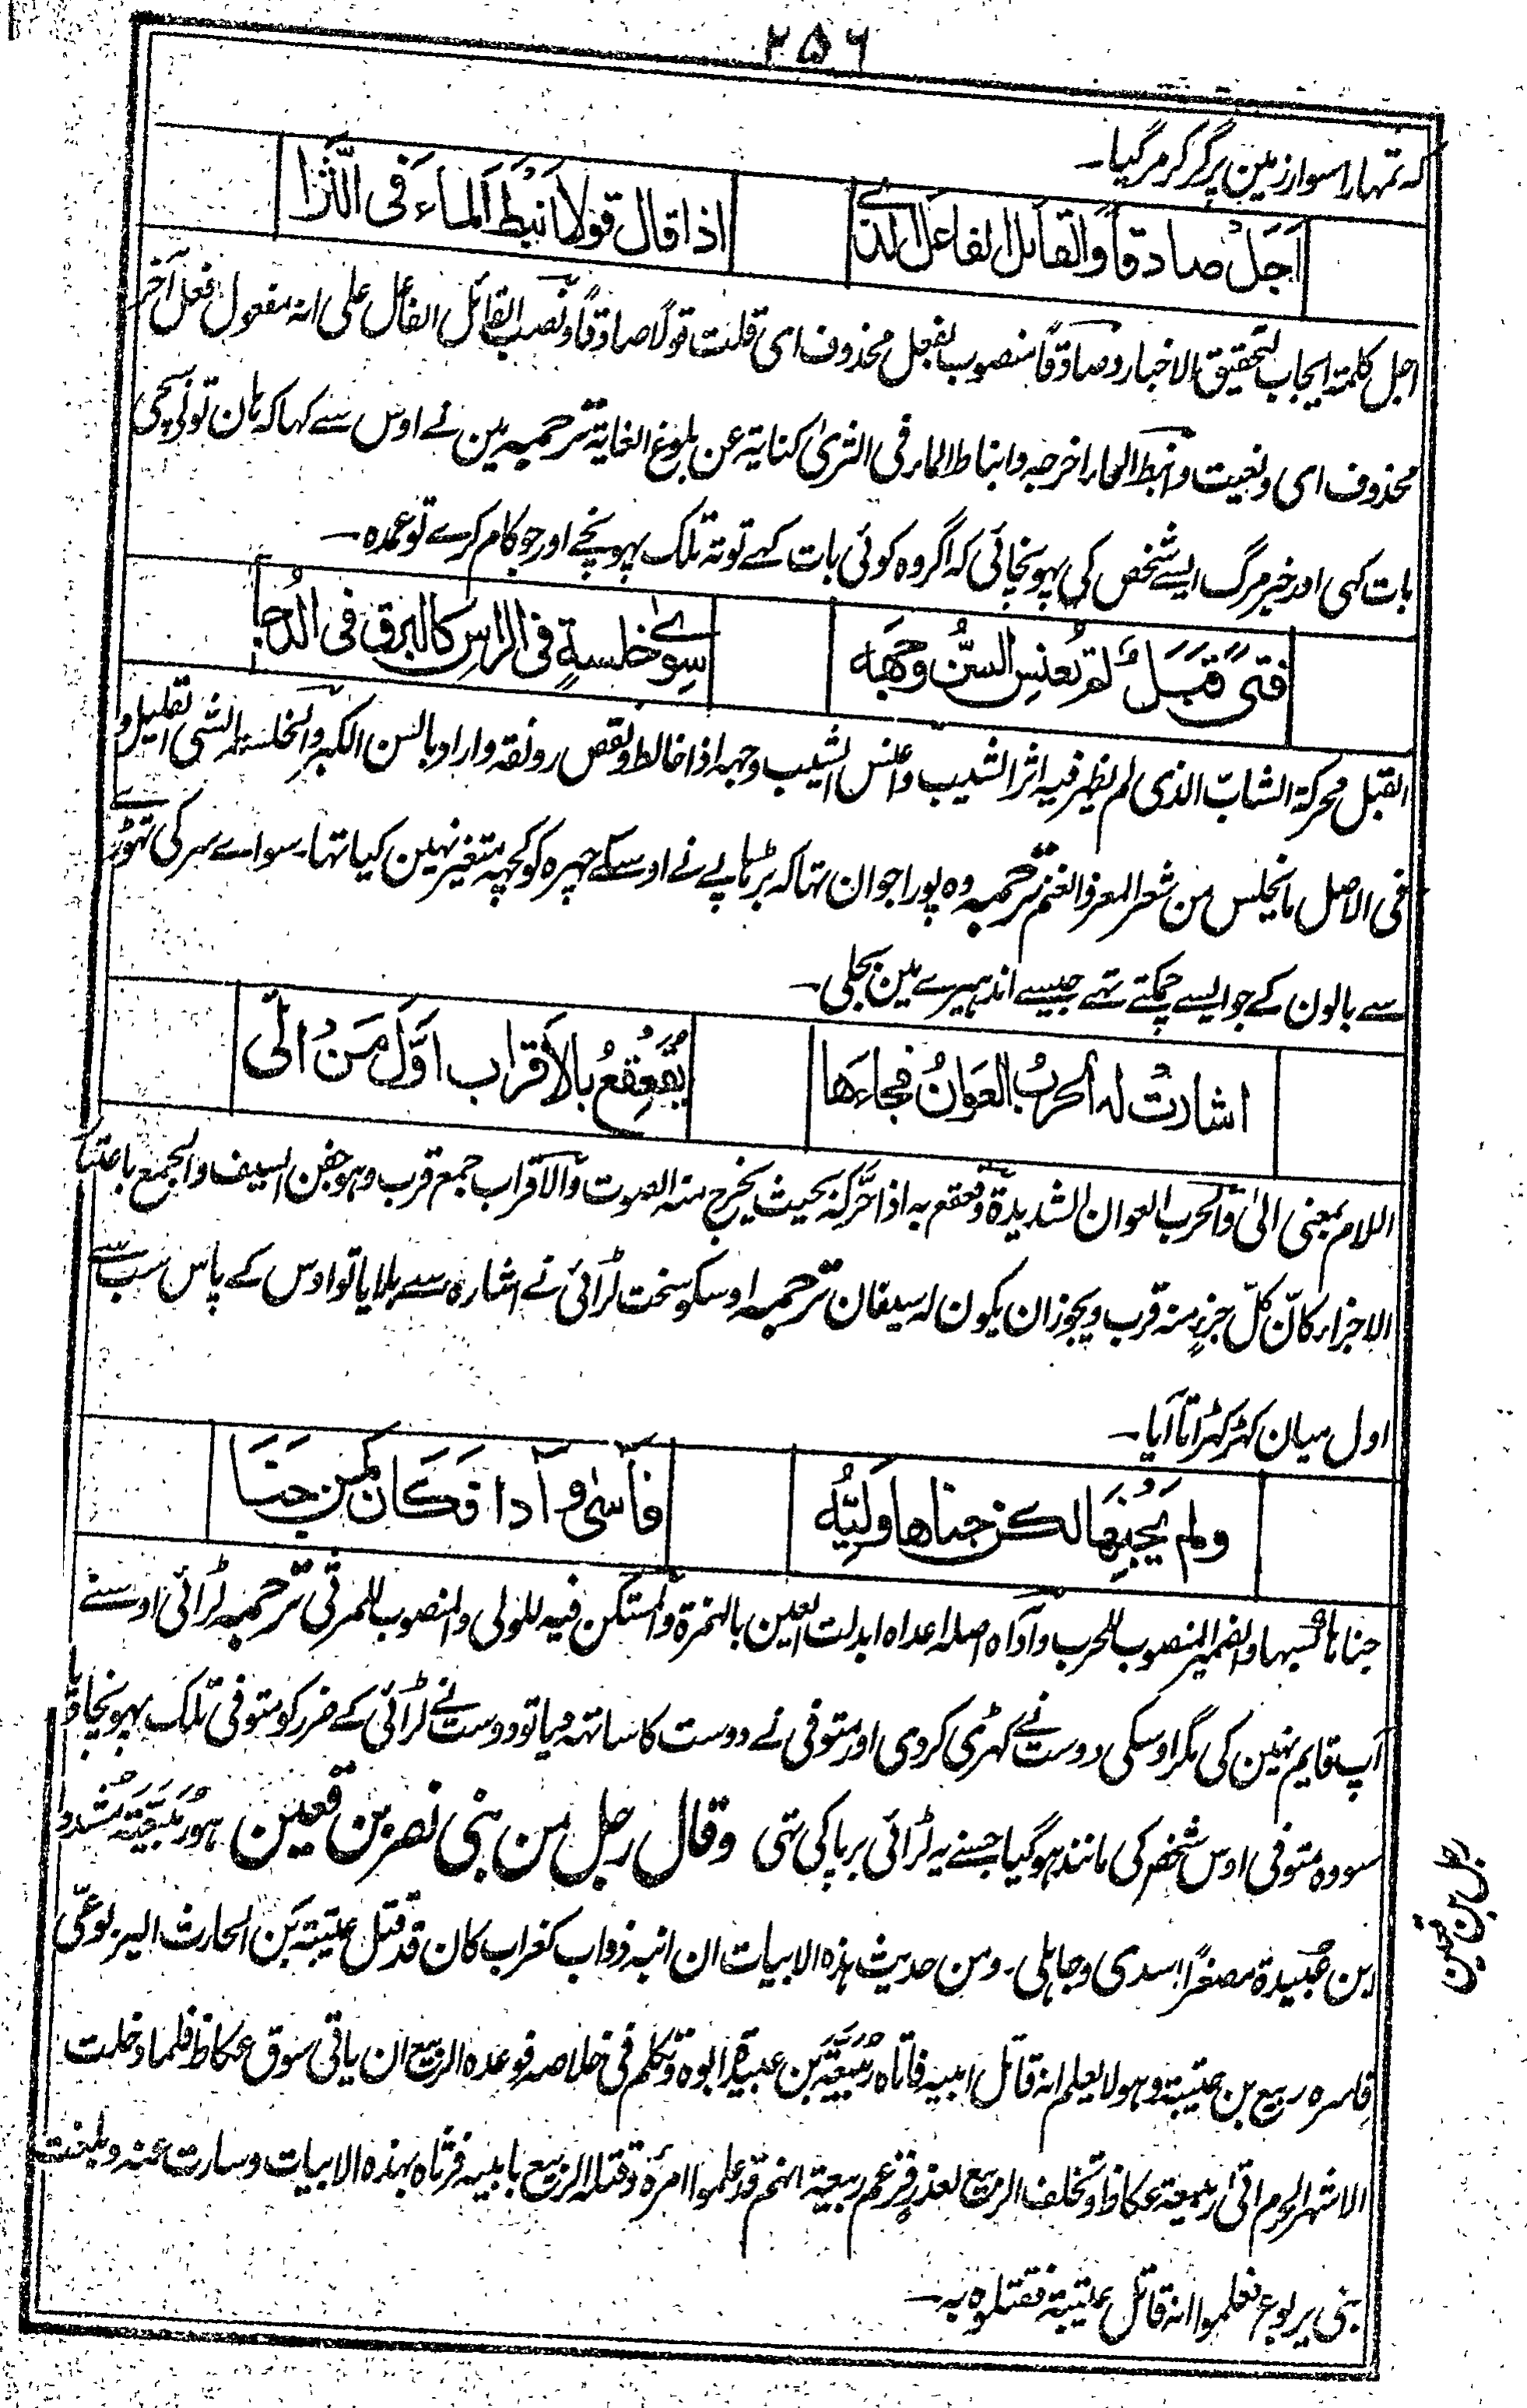 ۲۵۶
کہ تمہارا سوار زمین پر گر کر مرگیا۔
اَجَلْ صادقاً والقائل الفاعل الذی
اذا قال قولاً انبط الماءَ فی الثَّرَا
اجل کلمۃ ایجاب لتحقیق الاخبار وصادقاً منصوب بفعل محذوف ای قلت قولاً صادقاً ونصب القائل الفاعل علی انہ مفعول فعل آخر
محذوف ای ونعیت وانبط الماء اخرجہ وانباط الماء فی الثریٰ کنایۃ عن بلوغ الغایۃ ترجمہ مین نے اوس سے کہا کہ ہان تو نے سچی
بات کہی اور خبر مرگ ایسے شخص کی پہونچائی کہ اگر وہ کوئی بات کہے تو تہ تلک پہونچے اور جو کام کرے تو عمدہ۔
فتیً قَبَلٌ لم تُعنِسِ السنُّ وجهَه
سِوےٰ خلسةٍ فی الراس کالبرق فی الدُجا
القبل محرکۃ الشابّ الذی لم یظہر فیہ اثر الشیب واعنس الشیب وجہہ اذا خالط ونقص رونقہ واراد بالسن الکبر والخلسۃ الشی القلیل و
فی الاصل مایختلس من شعر المعز والغنم ترجمہ وہ پورا جوان تہا کہ بڑہاپے نے اوسکے چہرہ کو کچہہ متغیر نہین کیا تہا۔ سواے سر کی تہوڑے
سے بالون کے جو ایسے چمکتے تہے جیسے اندہیرے مین بجلی۔
اشارتْ له الحربُ العَوانُ فجاءها
یُقَعقِعُ بالاَقراب اوَّلَ مَنْ اتٰی
اللام بمعنی الیٰ والحرب العوان الشدیدۃ وقعقع بہ اذا حَرَّکہ بحیث یخرج منہ الصوت والاقراب جمع قرب وہو جفن السیف والجمع باعتبار
الاجزاء کانّ کلّ جزءٍ منہ قرب ویجوز ان یکون لہ سیفان ترجمہ اوسکو سخت لڑائی نے اشارہ سے بلایا تو اوس کے پاس سب سے
اول میان کہڑکہڑاتا آیا۔
ولم یَجنِها لکن جناها وَلِیُّه
فآسیٰ و آداہ فکان کمن جنا
جناہا کسبہا والضمیر المنصوب للحرب وآداہ اصلہ اعداہ ابدلت العین بالہمزۃ والمستکن فیہ للولی والمنصوب للمرثی ترجمہ لڑائی اوسنے
آپ قایم نہین کی مگر اوسکی دوست نے کہڑی کردی اور متوفی نے دوست کا ساتہہ دیا تو دوست نے لڑائی کے ضرر کو متوفی تلک پہونچا دیا
سو وہ متوفی اوس شخص کی مانند ہوگیا جسنے یہ لڑائی برپا کی تہی وقال رجل من بنی نصر بن قعین ہو رُبَیِّعَۃ مشدداً
ابن عُبیدۃ مصغراً اسدی وجاہلی۔ ومن حدیث ہذہ الابیات ان ابنہ ذواب کغراب کان قد قتل عتیبۃ بن الحارث الیربوعی
فاسرہ ربیع بن عتیبۃ وہو لا یعلم انہ قاتل ابیہ فاتاہ رُبَیِّعَۃ بن عبیدۃ ابوہ وتکلم فی خلاصہ فوعدہ الربیع ان یاتی سوق عکاظ فلما دخلت
الاشہر الحرم اتیٰ ربیعۃ عکاظ وتخلف الربیع لعذر فزعم ربیعۃ انہم قد علموا امرہ وقتلہ الربیع بابیہ فرثاہ بہذہ الابیات وسارت عنہ وبلغت
بنی یربوع فعلموا انہ قاتل عتیبۃ فقتلوہ بہ۔